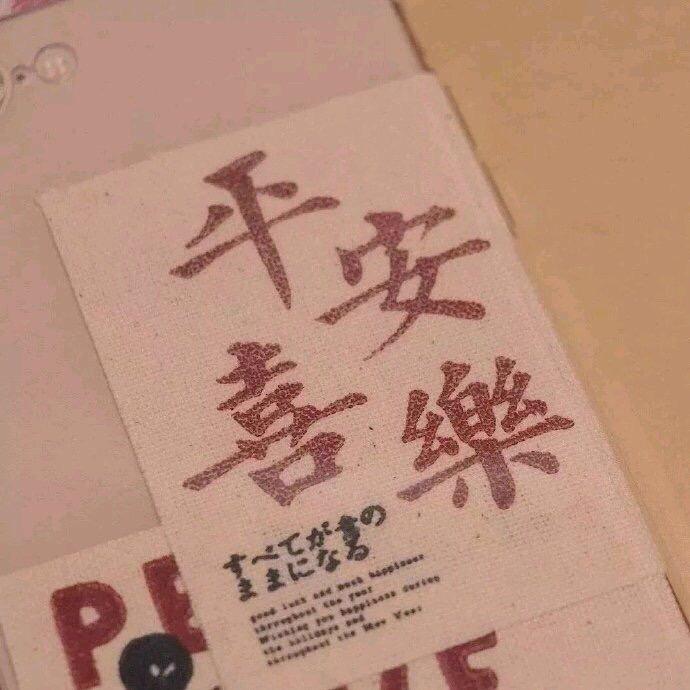 平安
喜樂
すべてが書の
ままになる
good luck and much happiness
throughout the year
Wishing you happiness during
the holidays and
throughout the New Year
PE